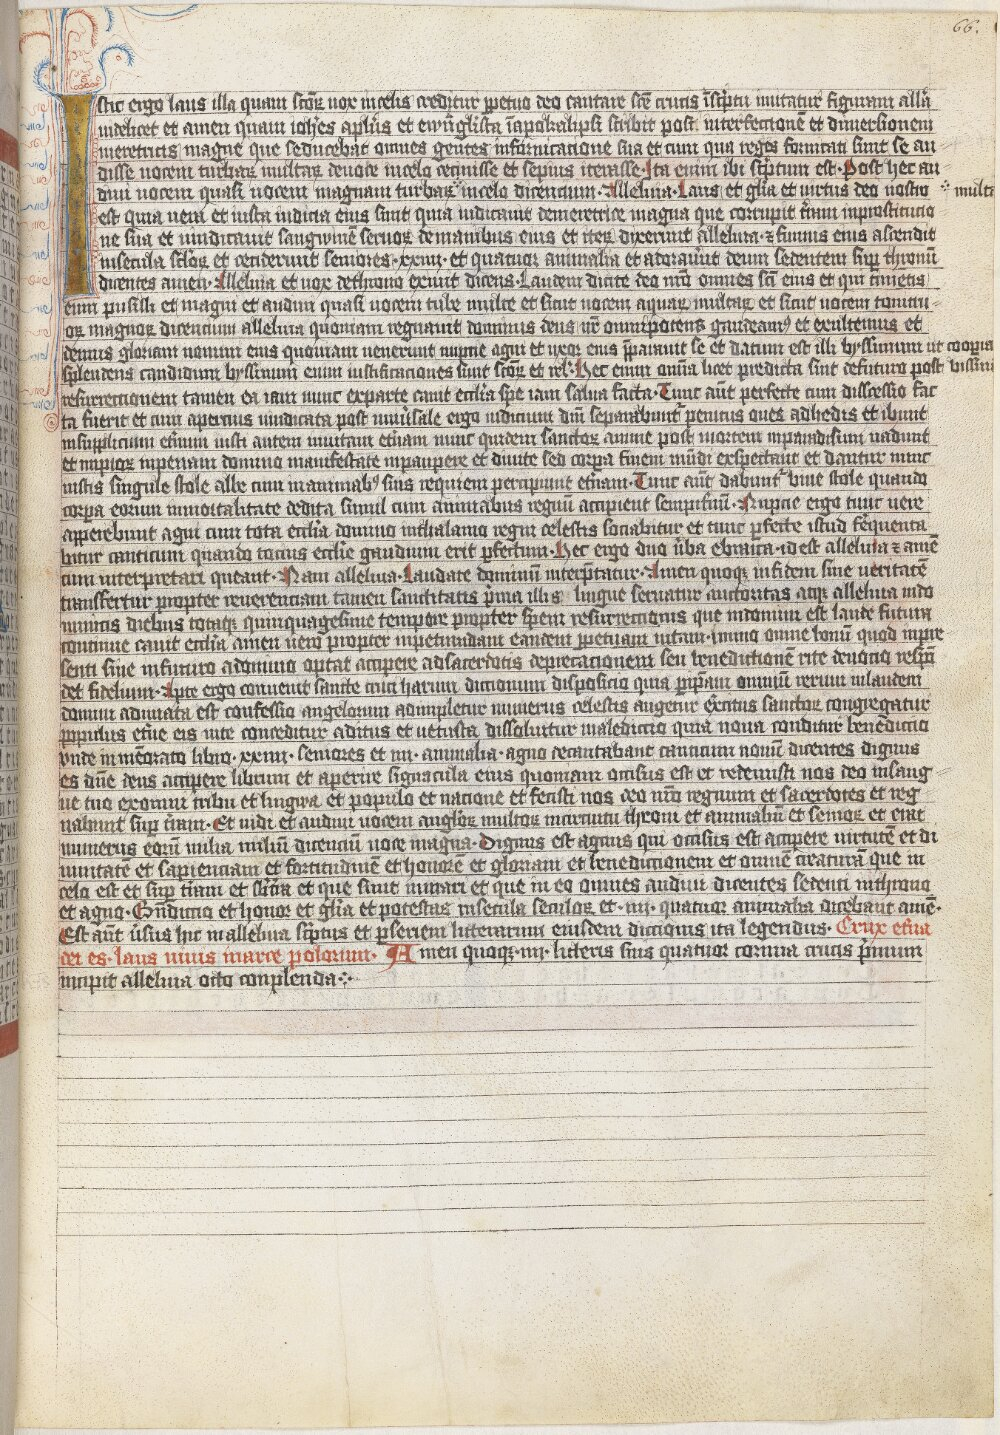 66.
Istic ergo laus illa quam sctōꝝ uox in celis creditur ꝑpetuo deo cantare sc̄e crucis īscp̄tu imitatur figuram all̄a
uidelicet et amen quam ioh̄es apl̄us et ewāgl̄ista ī apokalipsi scribit post interfectionē et dimersionem
meretricis magne que seducebat omnes gentes in fornicatione sua et cum qua reges fornicati sunt se au
disse uocem turbaꝝ multaꝝ deuote in celo cecinisse et sepius iterasse. Ita enim ibi sc̄ptum est. Post hec au
diui uocem quasi uocem magnam turbaꝝ in celo dicencium. Alleluia. Laus et gl̄ia et uirtus deo nostro ⁘ multa
est quia uera et iusta iudicia eius sunt quia iudicauit de meretrice magna que corrupit t̄ram in prostitucio
ne sua et uindicauit sangwinē seruoꝝ de manibus eius et iteꝝ dixerunt alleluia. ⁊ fumus eius ascendit
in secula sc̄loꝝ et ceciderunt seniores. xxiiii. et quatuor animalia et adorauūt deum sedentem suꝑ thronū
dicentes amen. Alleluia et uox de throno exiuit dicens. Laudem dicite deo nr̄o omnes sc̄i eius et qui timetis
eum pusilli et magni et audiui quasi uocem tube multe et sicut uocem aquaꝝ multaꝝ et sicut uocem tonitru
oꝝ magnoꝝ dicencium alleluia quoniam regnauit dominus deus nr̄ omnipotens gaudeamꝰ et exultemus et
demus gloriam nomini eius quoniam uenerunt nuptie agni et uxor eius p̄parauit se et datum est illi byssinum ut cooperia
splendens candidum byssinum enim iustificationes sunt sc̄oꝝ et rel. Hec enim omīa licet predicta sint de futuro post bissini
resurrectionem tamen ea iam nunc ex parte canit eccl̄ia spe iam salua facta. Tunc aūt perfecte cum discessio fac
ta fuerit et cum apercius uindicata post uniu̇sale ergo iudicium dn̄i separabuntꝛ penitus oues ab hedis et ibunt
in supplicium et̄num iusti autem in uitam et̄nam nunc quidem sanctoꝝ anime post mortem in paradisum uadunt
et impioꝝ in penam domino manifestate in paupere et diuite sed corꝑa finem mūdi exspectant et dantur nunc
iustis singule stole albe cum in animabꝰ suis requiem percipiunt et̄nam. Tunc aūt dabuntꝛ bine stole quando
corꝑa eorum inmortalitate dedita simul cum animabus regnū accipient sempit̄nū. Nuptie ergo tunc uere
apperebunt agni cum tota eccl̄ia domino in thalamo regni celestis sociabitur et tunc ꝑfecte istud freq̄uenta
bitur canticum quando tocius eccl̄ie gaudium erit ꝑfectum. Hec ergo duo u̇ba ebraica. id est alleluia ⁊ amē
cum interpretari queant. Nam alleluia. Laudate dominū interp̄tatur. Amen quoqꝫ in fidem siue ueritatē
transfertur propter reuerenciam tamen sanctitatis p̄ma illis lingue seruatur auctoritas atqꝫ alleluia in do
minicis diebus totaqꝫ quinquagesime tempore propter spem resurrectionis que in domini est laude futura
continue canit eccl̄ia amen uero propter inpetrandam eandem ꝑpetuam uitam. immo omne bonū quod in pre
senti siue in futuro a domino optat accipere ad sacerdotis deprecationem seu benedictionē rite deuocio resp̄o
det fidelium. Apte ergo conuenit sancte cruci harum dictionum disposicio quia per ip̄am omniū rerum in laudem
domini adunata est confessio angelorum adimpletur numerus celestis augetur ex̄citus sanctoꝝ congregatur
populus et̄ne eis uite conceditur aditus et uetusta dissoluitur maledictio quia noua conditur benedictio
vnde in mēorato libro. xxiiii. seniores et iiii. animalia. agno decantabant canticum nouū dicentes dignus
es dn̄e deus accipere librum et aperire signacula eius quoniam occisus est et redemisti nos deo in sang
ne tuo ex omni tribu et lingwa et populo et nacione et fecisti nos deo nr̄o regnum et sacerdotes et reg
nabimt suꝑ t̄ram. Et uidi et audiui uocem angl̄oꝝ multoꝝ in circuitu throni et animaliū et senioꝝ et erat
numerus eorū milia miliū dicenciū uoce magna. Dignus est agnus qui occisus est accipere uirtutē et di
uinitatē et sapienciam et fortitudinē et honorē et gloriam et benedictionem et omnē creaturā que in
celo est et suꝑ t̄ram et sūt̄ia et que sunt in mari et que in eo omnes audiui dicentes sedenti in throno
et agno. Bn̄dictio et honor et gl̄ia et potestas in secula seculoꝝ et. iiii. quatuor animalia dicebant amē.
Est aūt u̇sus hic in alleluia sc̄ptus et ꝑ seriem litterarum eiusdem dictionis ita legendus. Crux et̄na
dei es. laus uiuis in arce polorum. Amen quoqꝫ. iiii. litteris suis quatuor cornua crucis p̄mum
incipit alleluia octo conplenda ⁘